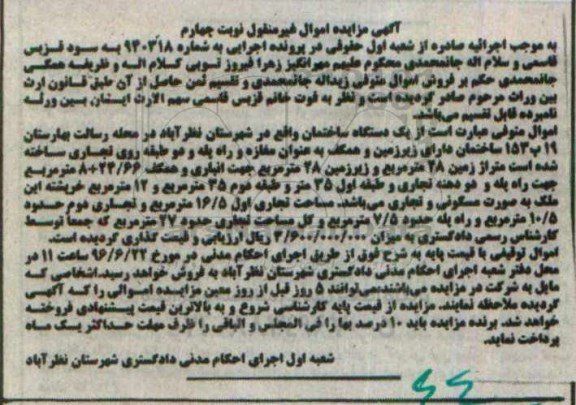 آگهی مزایده اموال غیرمنقول نوبت چهارم
به موجب اجرائیه صادره از شعبه اول حقوقی در پرونده اجرایی به شماره ۹۴۰۳۱۸ به سود قزبس
قاسمی و سلام اله جانمحمدی محکوم علیهم مهرانگیز زهرا فیروز کلام اله و ظریفه همگی
جانمحمدی حکم بر فروش اموال متوفی زیداله جانمحمدی و تقسیم ثمن حاصل از آن طبق قانون ارث
بین وراث مرحوم صادر گردیده است و نظر به فوت خانم قزبس قاسمی سهم الارث ایشان بین ورثه
نامبرده قابل تقسیم می‌باشد.
اموال متوفی عبارت است از یک دستگاه ساختمان واقع در شهرستان نظرآباد در محله رسالت بهارستان
۱۹ پ۱۵۳ ساختمان دارای زیرزمین و همکف به عنوان مغازه و راه پله و دو طبقه روی تجاری ساخته
شده است متراژ زمین ۳۸ مترمربع و زیرزمین ۲۸ مترمربع جهت انباری و همکف ۸+۲۴/۶۶ مترمربع
جهت راه پله و دو دهنه تجاری و طبقه اول ۳۵ متر و طبقه دوم ۳۵ مترمربع و ۱۲ مترمربع خرپشته این
ملک به صورت مسکونی و تجاری می‌باشد. مساحت تجاری اول ۱۶/۵ مترمربع و تجاری دوم حدود
۱۰/۵ مترمربع و راه پله حدود ۷/۵ مترمربع و کل مساحت تجاری حدود ۲۷ مترمربع که جمعاً توسط
کارشناس رسمی دادگستری به میزان ۳/۶۰۰/۰۰۰/۰۰۰ ریال ارزیابی و قیمت گذاری گردیده است.
اموال توقیفی با قیمت پایه به شرح فوق از طریق اجرای احکام مدنی در مورخ ۹۶/۶/۲۲ ساعت ۱۱ در
محل دفتر شعبه اجرای احکام مدنی دادگستری شهرستان نظرآباد به فروش خواهد رسید.اشخاصی که
مایل به شرکت در مزایده می‌باشند می‌توانند ۵ روز قبل از روز معین مزایده اموالی را که آگهی
گردیده ملاحظه نمایند. مزایده از قیمت پایه کارشناسی شروع و به بالاترین قیمت پیشنهادی فروخته
خواهد شد. برنده مزایده باید ۱۰ درصد بها را فی المجلس و الباقی را ظرف مهلت حداکثر یک ماه
پرداخت نماید.
شعبه اول اجرای احکام مدنی دادگستری شهرستان نظرآباد